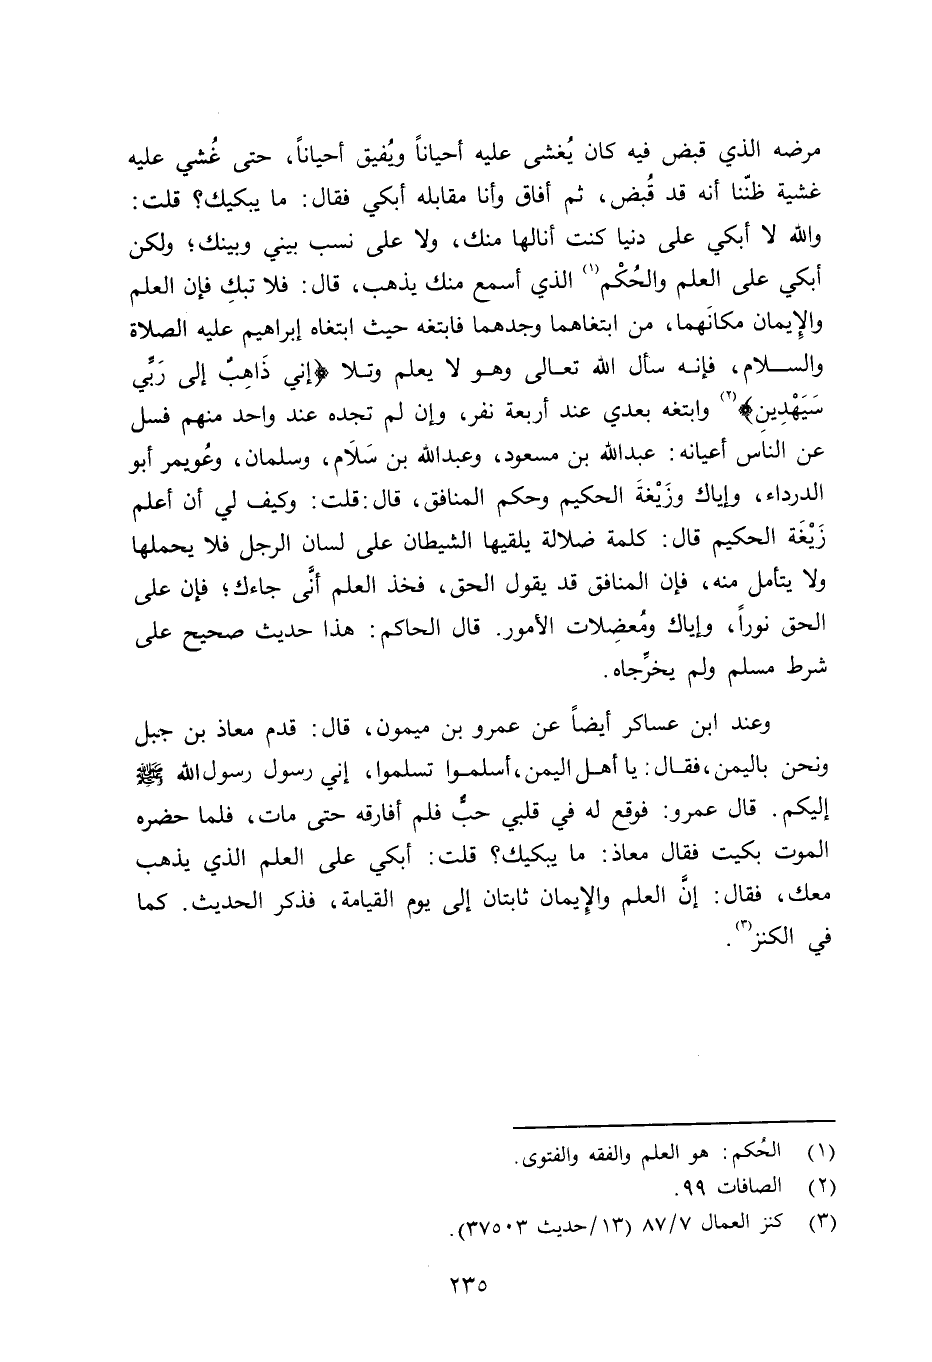 مرضه الذي قبض فيه كان يُغشى عليه أحياناً ويُفيق أحياناً، حتى غُشي عليه
غشية ظنّنا أنه قد قُبض، ثم أفاق وأنا مقابله أبكي فقال: ما يبكيك؟ قلت:
والله لا أبكي على دنيا كنت أنالها منك، ولا على نسب بيني وبينك؛ ولكن
أبكي على العلم والحُكْم(١) الذي أسمع منك يذهب، قال: فلا تبكِ فإن العلم
والإِيمان مكانَهما، من ابتغاهما وجدهما فابتغه حيث ابتغاه إبراهيم عليه الصلاة
والسلام، فإنه سأل الله تعالى وهو لا يعلم وتلا ﴿إني ذَاهِبٌ إلى رَبِّي
سَيَهْدِينِ﴾(٢) وابتغه بعدي عند أربعة نفر، وإن لم تجده عند واحد منهم فسل
عن الناس أعيانه: عبدالله بن مسعود، وعبدالله بن سَلَام، وسلمان، وعُويمر أبو
الدرداء، وإياك وزَيْغةَ الحكيم وحكم المنافق، قال: قلت: وكيف لي أن أعلم
زَيْغَة الحكيم قال: كلمة ضلالة يلقيها الشيطان على لسان الرجل فلا يحملها
ولا يتأمل منه، فإن المنافق قد يقول الحق، فخذ العلم أنَّى جاءك؛ فإن على
الحق نوراً، وإياك ومُعضِلات الأمور. قال الحاكم: هذا حديث صحيح على
شرط مسلم ولم يخرِّجاه.
وعند ابن عساكر أيضاً عن عمرو بن ميمون، قال: قدم معاذ بن جبل
ونحن باليمن، فقال: يا أهل اليمن، أسلموا تسلموا، إني رسول رسول الله ﷺ
إليكم. قال عمرو: فوقع له في قلبي حبٌّ فلم أفارقه حتى مات، فلما حضره
الموت بكيت فقال معاذ: ما يبكيك؟ قلت: أبكي على العلم الذي يذهب
معك، فقال: إنَّ العلم والإِيمان ثابتان إلى يوم القيامة، فذكر الحديث. كما
في الكنز(٣).
(١) الحُكم: هو العلم والفقه والفتوى.
(٢) الصافات ٩٩.
(٣) كنز العمال ٨٧/٧ (١٣/حديث ٣٧٥٠٣).
٢٣٥